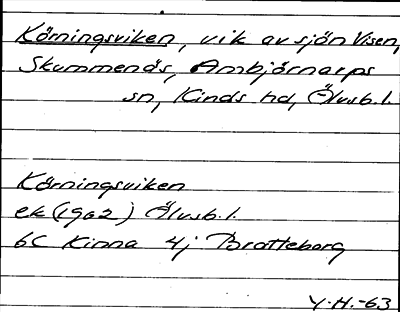 Körningsviken, vik av sjön Visen,
Skummenäs, Ambjörnarps
sn, Kinds hd, Älvsb. l.
Körningsviken
ek (1962) Älvsb. l.
6C Kinna 4j Brotteborg
Y.H.-63